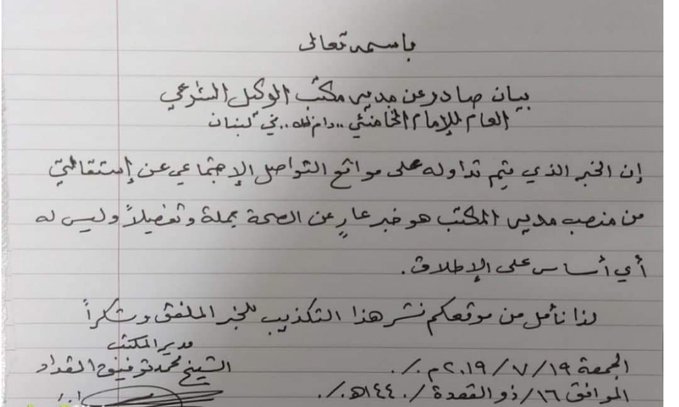 باسمه تعالى
بيان صادر عن مدير مكتب الوكيل الشرعي
العام للإمام الخامنئي .. دام ظله .. في لبنان
إن الخبر الذي يتم تداوله على مواقع التواصل الإجتماعي عن إستقالتي
من منصب مدير المكتب هو خبر عارٍ عن الصحة جملة وتفصيلاً وليس له
أي أساس على الإطلاق.
لذا نأمل من موقعكم نشر هذا التكذيب للخبر الملفق وشكراً
مدير المكتب
الشيخ محمد توفيق المقداد
الجمعة ١٩ / ٧ / ٢٠١٩م./.
الموافق ١٦ / ذو القعدة / ١٤٤٠هـ./.